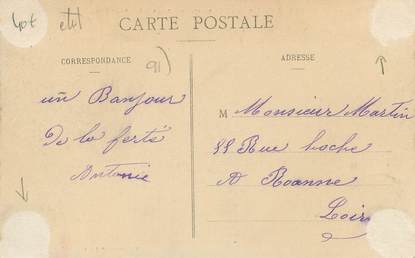 Lot etit
CARTE POSTALE
CORRESPONDANCE
91)
ADRESSE
un Banjour
De la ferté
Antonie
M Monsieur Martin
88 Rue hoche
A Roanne
Loire